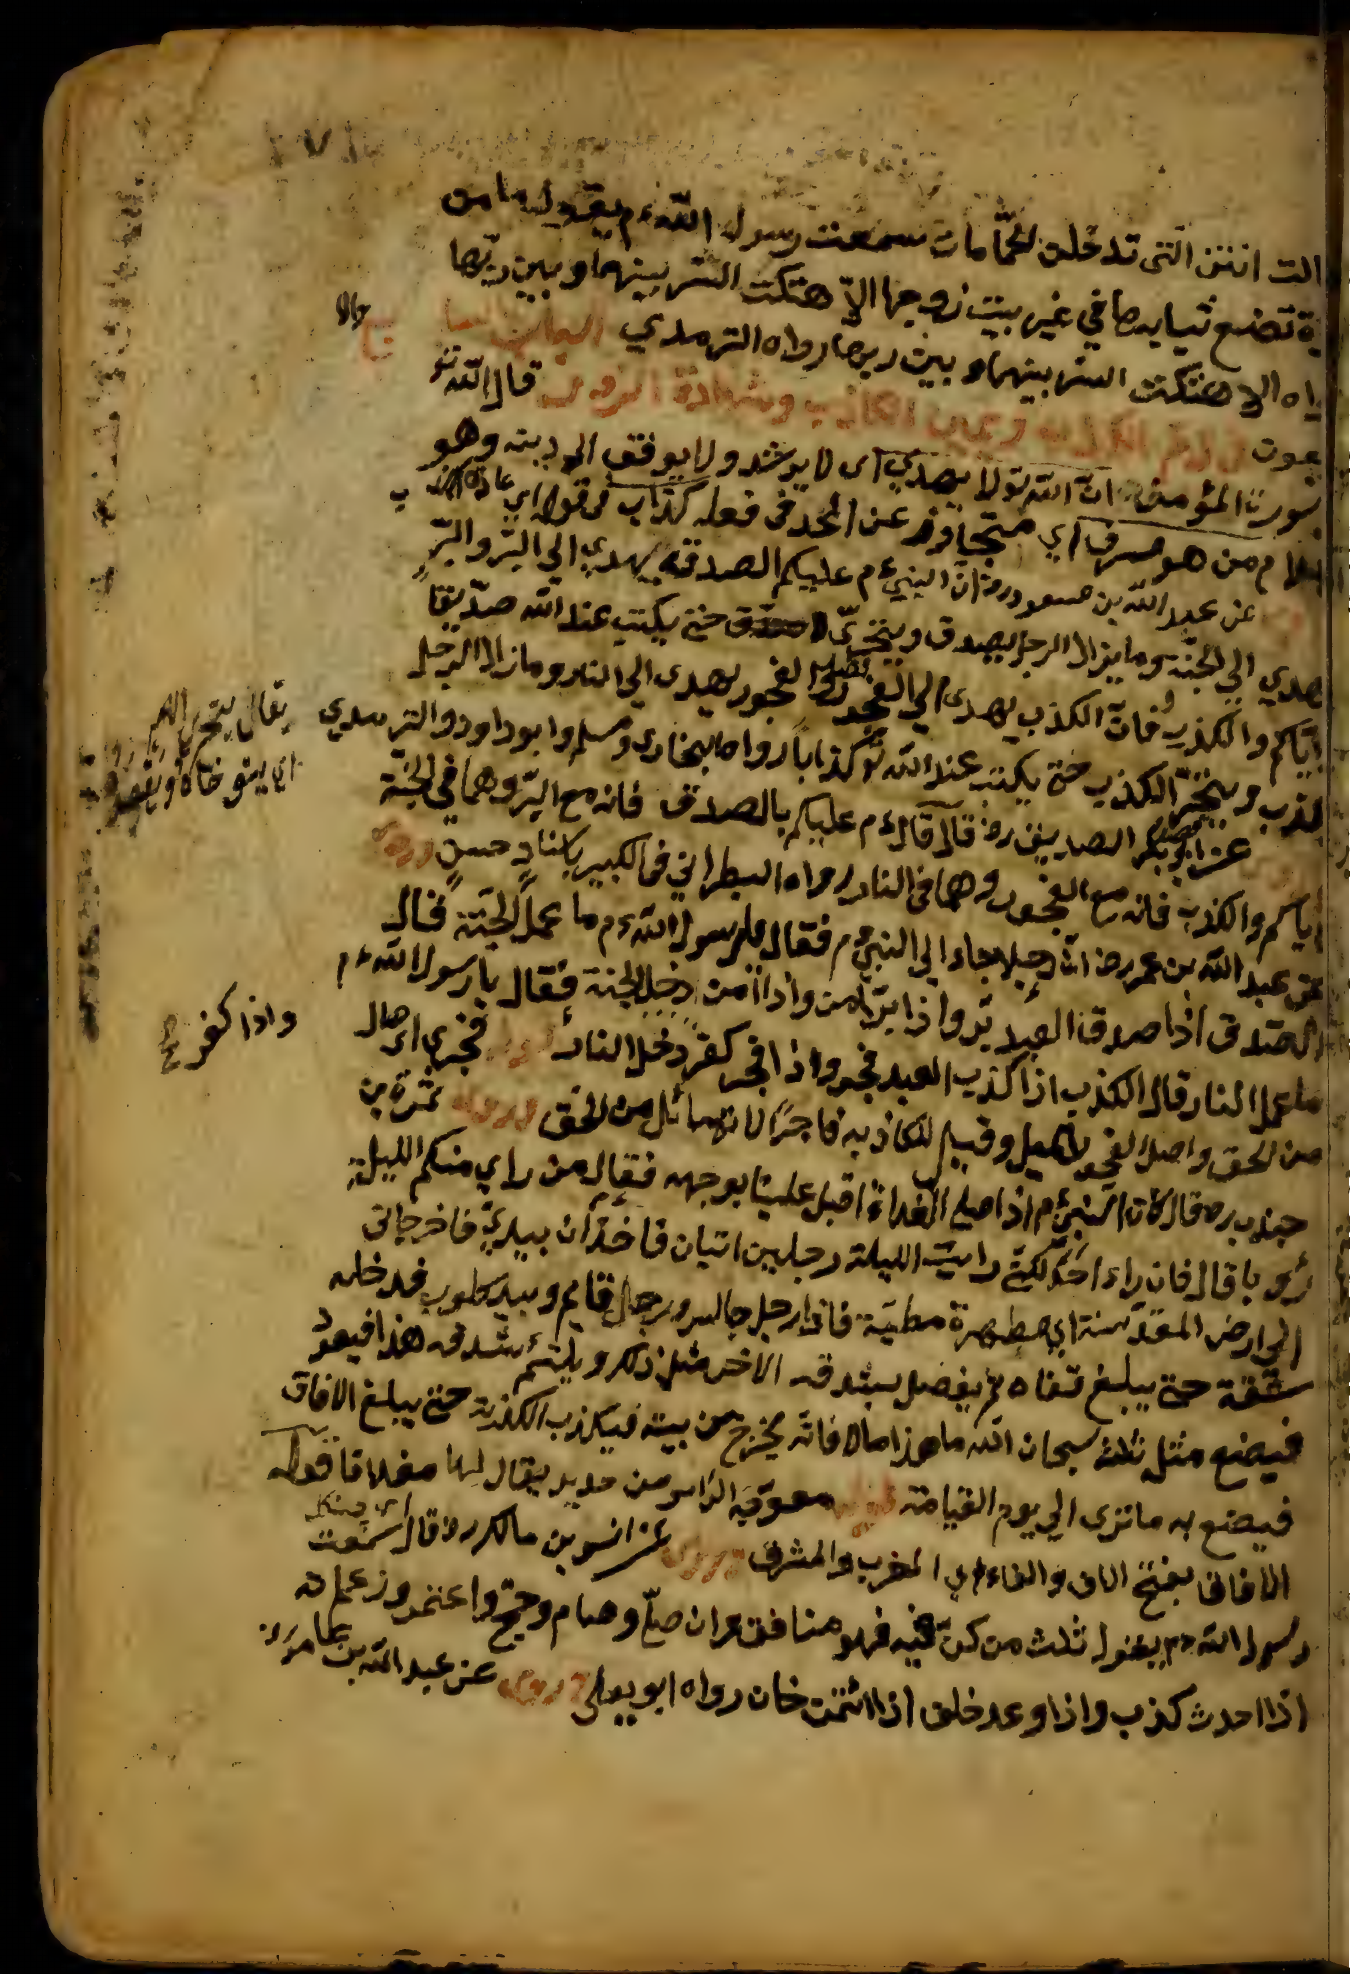 الت انتن التي تدخلن الحمّامات سمعت رسول اللّه ءم يقول ما من
ءة تضع ثيابها في غير بيت زوجها الاّ هتكت الستر بينها وبين ربّها
ياه الا هتكت الستر بينها وبين ربها رواه الترمدي الباب السا
بعون في ذم الكذب ويمين الكاذب وشهادة الزور قال اللّه تع
سورة المؤمن انّ اللّه تع لا يهدي اى لا يرشد ولا يوفق الى دينه وهو
من هو مسرف اي متجاوز عن الحد في فعله كذاب في قوله اي عادة
عن عبد اللّه بن مسعود رض انّ النبي ءم عليكم الصدق يهدي الي البرّ والبرّ
يهدي الي الجنّة وما يزال الرجل يصدق ويتحرّى حتى يكتب عند اللّه صدّيقاً
ايّاكم والكذب فانّ الكذب يهدى الي الفجور الفجور يهدى الي النار وما زال الرجل
يكذب ويتحرّ الكذب حتى يكتب عند اللّه تع كذاباً رواه البخارى ومسلم وابو داود والترمدي
عن ابو بكر الصديق رض قال قال ءم عليكم بالصدق فانه مع البرّ وهما في الجنّة
اياكم والكذب فانه مع الفجور وهما في النار رواه الطبراني في الكبير باسنادٍ حسنٍ وروى
عن عبد اللّه بن عمر رض انّ رجلا جاء الي النبي ءم فقال يا رسول اللّه ءم ما عمل الجنّة فقال
الصدق اذا صدق العبد برّ واذا برّ امن واذا امن دخل الجنة فقال يا رسول اللّه ءم
ما عمل النار قال الكذب اذا كذب العبد فجر واذا فجر كفر دخل النار قوله فجر اى مال
من الحق واصل الفجور الميل وقيل للكاذب فاجرًا لانه مائل من الحق وروى سمرة بن
جندب رض قال كان النبي ءم اذا صلى الغداة اقبل علينا بوجهه فقال من راي منكم الليلة
رؤيا قال فان راى احد رايت الليلة رجلين اتيان فاخذان بيديّ فاخرجانى
الي ارض المقدّسة اي مطهرة مطيّبة فاذا رجل جالس ورجل قايم وبيده كلوب فيدخله
شقّة حتى يبلغ قفاه ثم يفعل بشدقه الاخر مثل ذلك ويلتئم شدقه هذا فيعود
فيصنع مثل ذلك سبحان اللّه ما هذا قالا فانّه يخرج من بيته فيكذب الكذبة حتى يبلغ الافاق
فيصنع به ما ترى الي يوم القيامة قوله معوّجة الراس من حديد يقال لها قوله
الافاق بفتح الالف والفاء اي المغرب والمشرق وروى عن انس بن مالك رض قال سمعت
رسول اللّه ءم يقول ثلث من كنّ فيه فهو منافق وان صلّى وصام وحجّ واعتمر وزعم انه
اذا احدث كذب واذا وعد خلف اذا ائتمن خان رواه ابو يعلى وروى عن عبد اللّه بن عامر رض
يقال يتحرى الامر
اى يتوخاه ويقصد
واذا كفر صح